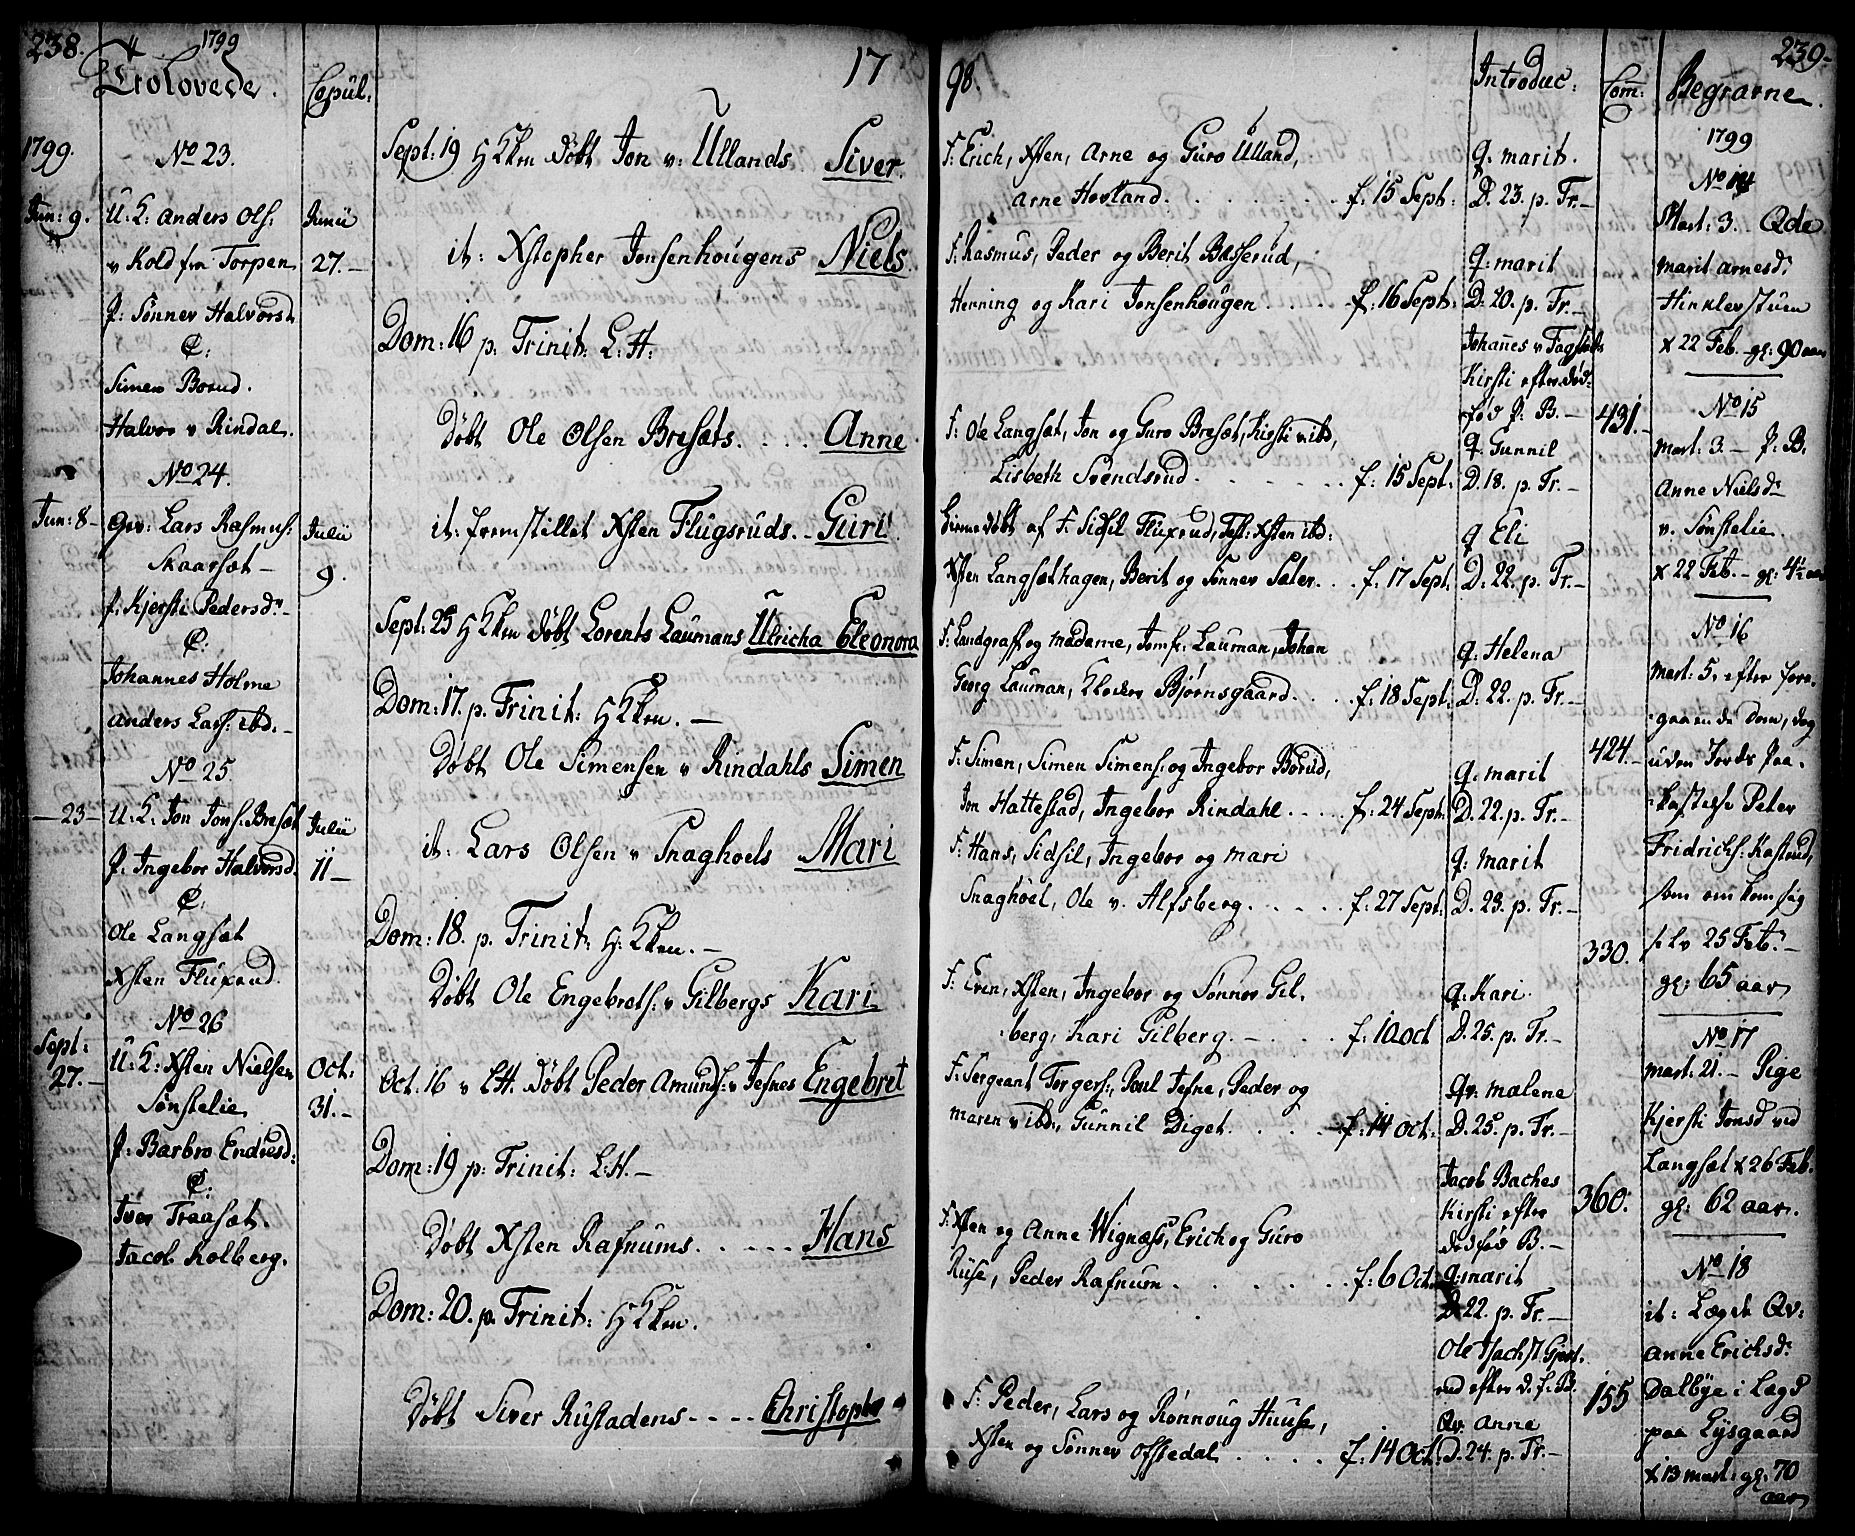 238.
1799
Trolovede.
Copul:
1799.
No 23.
Jun: 9.
U: K: Anders Ols:
v Kold fra Torpen
P: Sønnev Halvorsd
C:
Simen Borud.
Halvor v Rindal.
Junii
27.-
No 24.
Jun: 8-
Gv: Lars Rasmus:
Skaarsæt-
P: Kjersti Pedersd:-
C:
Johannes Holme
Anders Lars: ibd.-
Julii
9.
No 25
-23-
U: K: Jon Jons: Bresæt
P: Ingebor Halvorsd.
C:
Ole Langsæt
Xsten Fluxrud.
Julii
11-
No 26
Sept:
27.-
U: K: Xsten Nielsen
Sønstelie
P: Barbro Endresd:
C:
Iver Traasæt.
Jacob Kolberg.
Oct:
31.-
17
Sept: 19 H Km døbt Jon v: Ullands Siver.
it: Xstopher Jonsenhougens Niels.
Dom: 16 p. Trinit: L: H:
Døbt Ole Olsen Bresæts. . . . Anne
it: fremstillet Xsten Flugsruds.- Guri
Sept: 25 H Km døbt Lorents Laumans Ulricha Eleonora
Dom: 17. p. Trinit: H Km.-
Døbt Ole Simensen v Rindahls Simen
it: Lars Olsen v Snaghoels Mari
Dom: 18. p. Trinit: H: Km.-
Døbt Ole Engebrets: v Gilbergs Kari
Oct. 16 v L H. døbt Peder Amunds: v Jefnes Engebret
Dom: 19 p: Trinit: L: H.-
Døbt Xsten Rafnums. . . . . Hans
Dom: 20. p. Trinit: H Km.
Døbt Siver Rustadens - - - - Christophe
98.
F: Erich, Xsten, Arne og Guro Ulland,
Arne Hovland. . . . . . . . f: 15 Sept:
F: Rasmus, Peder og Berit Bæsserud,
Henning og Kari Jonsenhougen . . . . . f: 16 Sept:
F: Ole Langsæt, Jon og Guro Bresæt, Kirsti v ibd,
Lisbeth Svendsrud . . . . . . . f: 15 Sept:
hiemedøbt af F: Sidsil Fluxrud, Test: Xsten ibd:
Xsten Langsæthagen, Berit og Sønnev Sæter . . . f: 17 Sept.
F: Landgraff og Madame, Jomfr: Lauman, Johan
Georg Lauman, Klocker Bjørnsgaard . . . . f: 18 Sept:
F: Simen, Simen Simens: og Ingebor Borud,
Jon Hattestad, Ingebor Rindahl . . . . f: 24 Sept:
F: Hans, Sidsil, Ingebor og Mari
Snaghoel, Ole v. Alfsberg . . . . . f: 27 Sept:
F: Even, Xsten, Ingebor og Sønnev Gil-
:berg, Kari Gilberg. - . . . . f: 10 oct
F: Sergeant Torgers:, Poul Jefne, Peder og
Maren v ibd:, Gunnil Diget. . . . . f: 14 oct:
F: Xsten og Anne Wignæss, Erich og Guro
Ruse, Peder Rafnum . . . . . . . f: 6 Oct.
F: Peder, Lars og Rønnoug Huuse,
Xsten og Sønnev Offtedal . . . . . f: 14 Oct:
Introduc:
Q: Marit.
D. 23. p. Tr.-
Q: Marit
D: 20. p. Tr.-
Johannes v Fagstads
Kirsti efter død-
fød P: B.-
Q: Gunnil
D. 18. p. Tr.-
Q Eli
D: 22. p. Tr.-
Q: Helena
D: 22. p. Tr.-
Q: Marit
D. 22. p. Tr.-
Q: Marit
D. 23. p. Tr.-
Q: Kari
D. 25. p. Tr.-
Qv: Malene
D. 25. p. Tr.-
Jacob Baches
Kirsti efter
dødfød B.-
Q: Marit
D. 22. p. Tr.-
Ole
efter d. f. B.
Qv: Anne
D. 24. p. Tr.-
Com:
431.-
424.-
330.
360.
155
239.-
Begravne.
1799
No 14
Mart: 3. Qde
Marit Arnesd:
Hinklevstuen
x 22 Feb. gl: 90 aar
No 15
Mart: 3- P: B:
Anne Nielsd-
v. Sønstelie.
x 22 Feb.- gl: 4½ aar
No 16
Mart: 5. efter fore-
:gaaende Dom, dog
uden Jords Paa-
:kastelse Peter
Fridrichs: Kastrud,
som omkom sig
selv 25 Feb:-
gl: 65 aar
No 17
Mart: 21.- Pige
Kjersti Jonsd ved
Langsæt x 26 Feb.
gl: 62 aar.
No 18
it: Lægds Qv:
Anne Erichsd:
Dalbye i Lægd
paa Lysgaard
x 13 Mart: gl: 70
aar